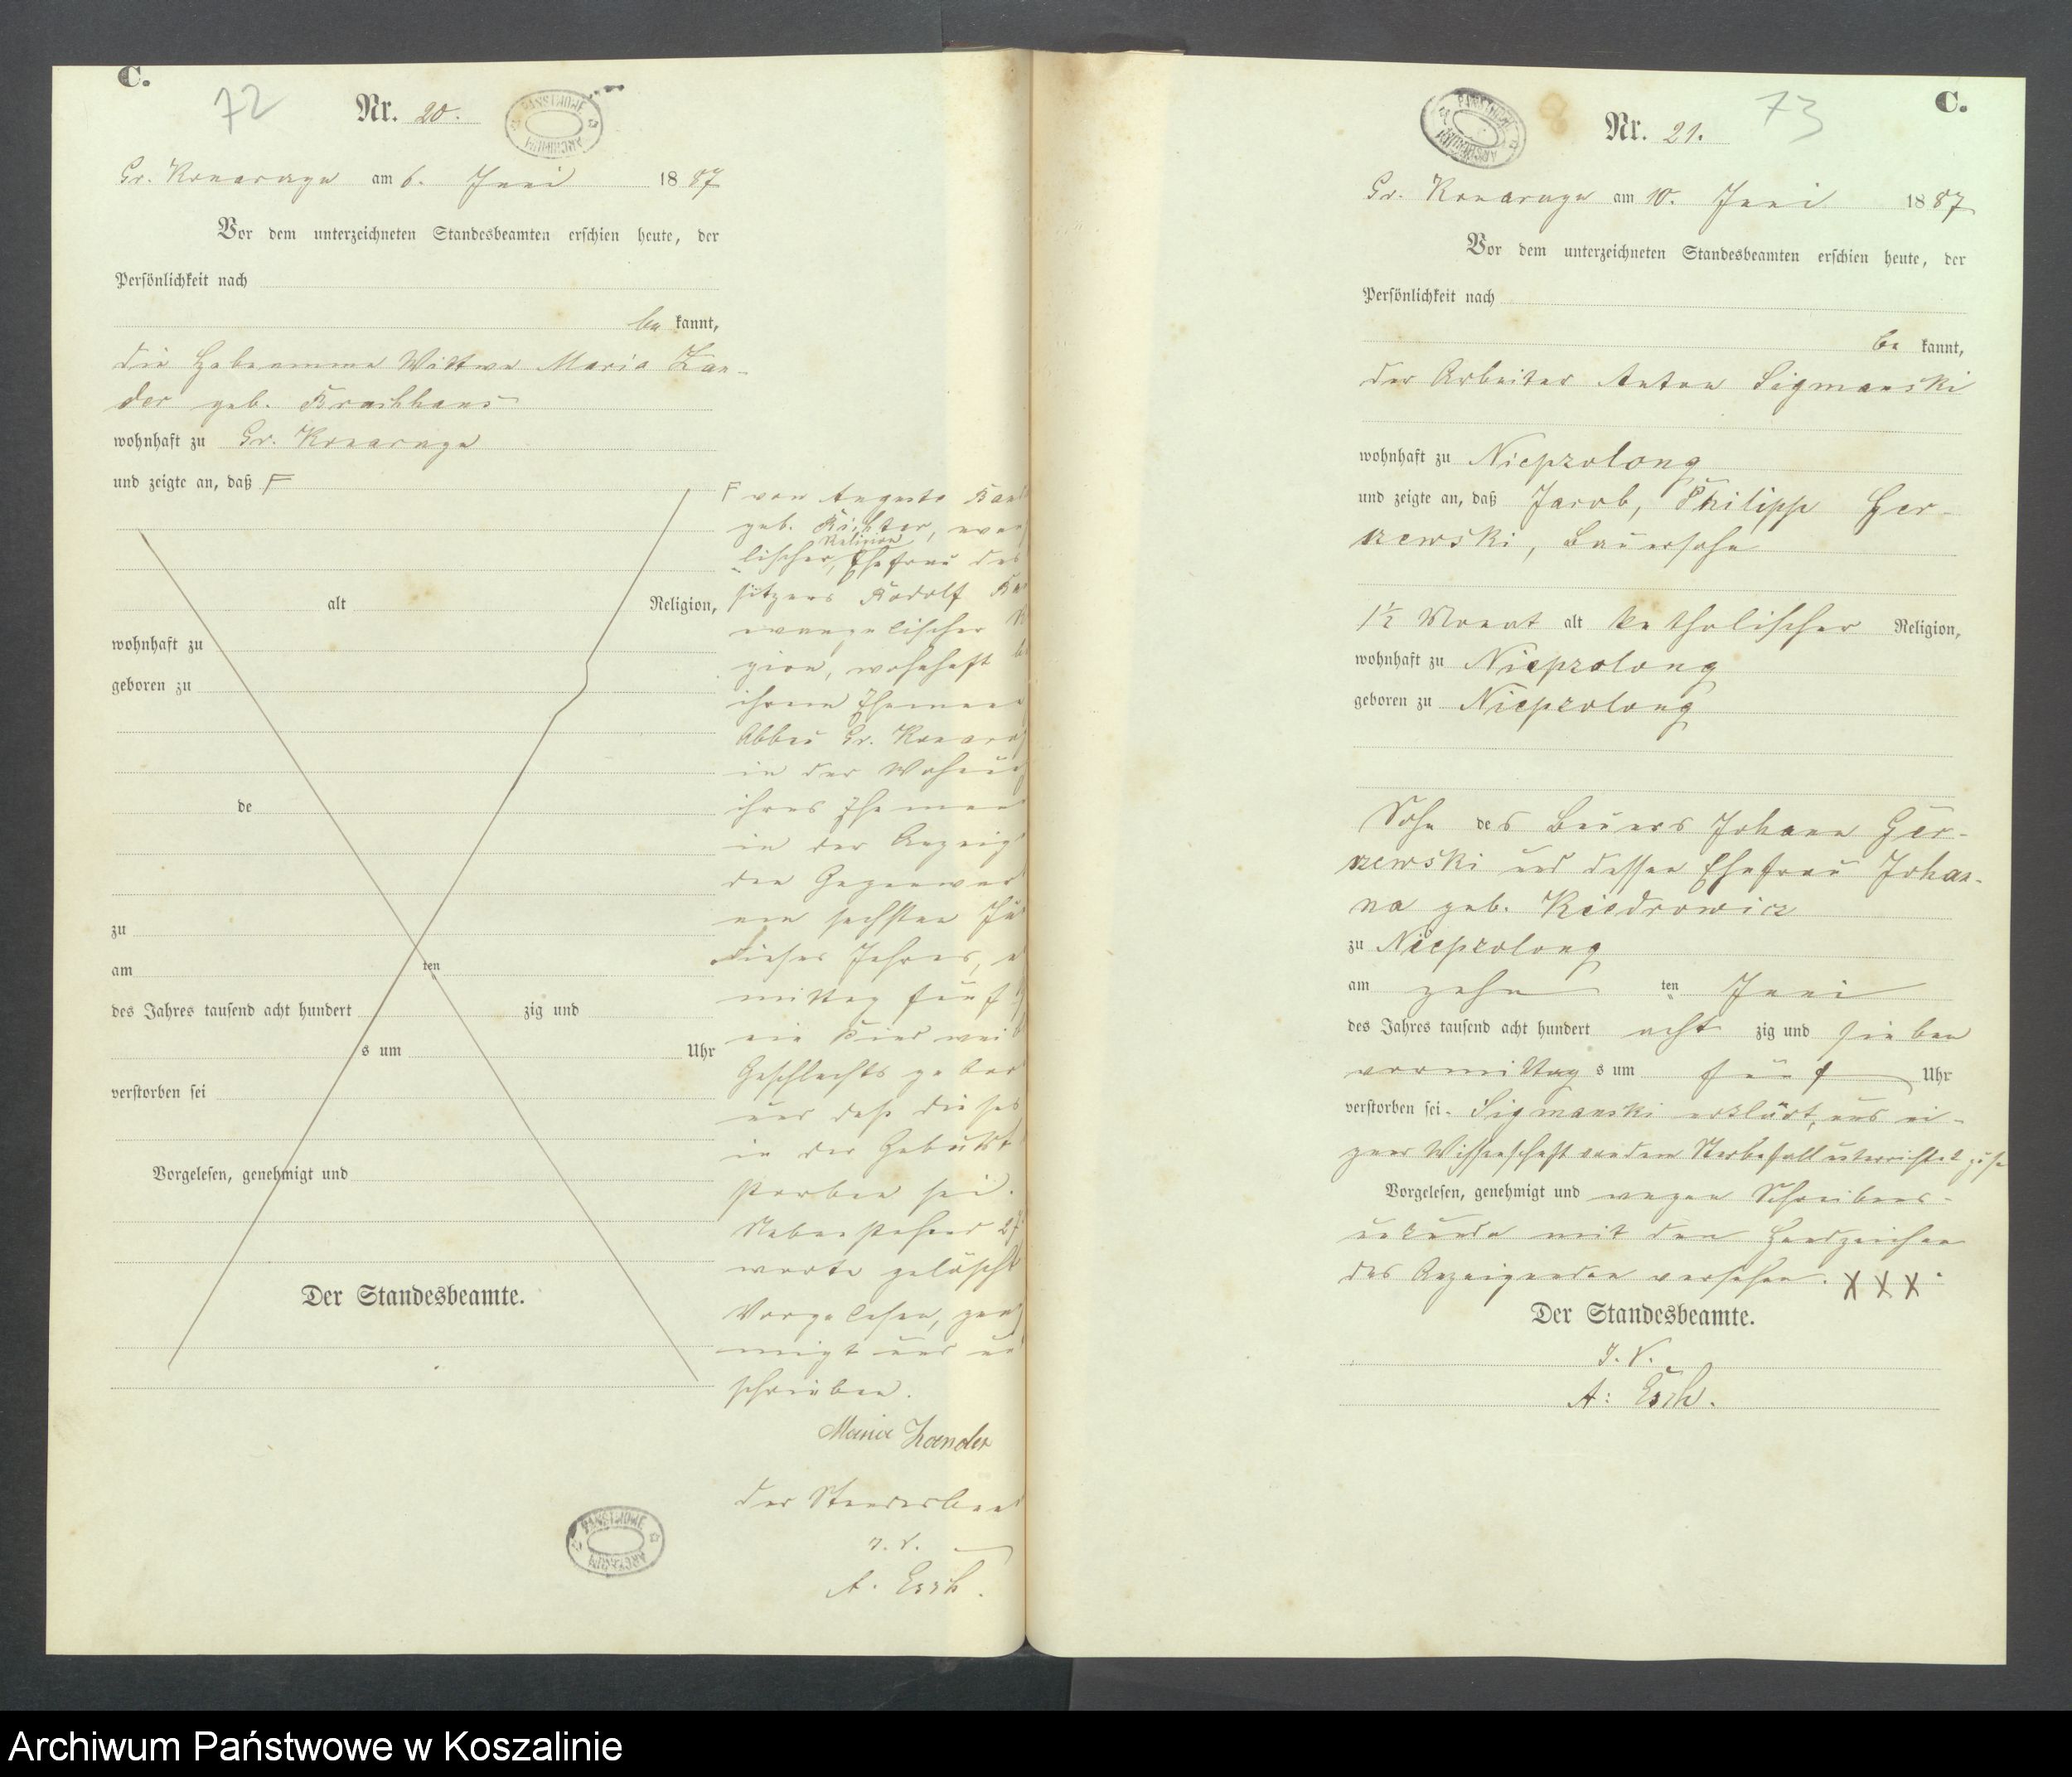 C.
72
Nr. 20.
PAŃSTWOWE ARCHIWUM
Gr. Konarzyn am 6. Juni 1887
Vor dem unterzeichneten Standesbeamten erschien heute, der
Persönlichkeit nach
be kannt,
die Hebeamme Wittwe Maria Zan-
der geb.
wohnhaft zu Gr. Konarzyn
und zeigte an, daß F
alt Religion,
wohnhaft zu
geboren zu
de
zu
am ten
des Jahres tausend acht hundert zig und
s um Uhr
verstorben sei
Vorgelesen, genehmigt und
Der Standesbeamte.
F von Auguste
geb. Richter, evan
Religion
lischer, Ehefrau des
sitzers Rudolf
evangelischer
gion, wohnhaft
ihrem Eheman
Abbau Gr. Konarz
in der Wohnung
ihres Eheman
in der Anzeig
den Gegenwar
am sechsten Ju
dieses Jahres,
mittag fünf
ein Kind weib
Geschlechts gebor
und daß dieses
in der Geburt
storben sei.
Nebenstehend 27
worte gelöscht
Vorgelesen, geneh
migt und un
schrieben.
Maria Zander
Der Standesbeam
I. V.
A. Esch.
PAŃSTWOWE ARCHIWUM
C.
73
Nr. 21.
PAŃSTWOWE ARCHIWUM
Gr. Konarzyn am 10. Juni 1887
Vor dem unterzeichneten Standesbeamten erschien heute, der
Persönlichkeit nach
be kannt,
der Arbeiter Anton Sigmanski
wohnhaft zu Nieprzolong
und zeigte an, daß Jacob, Philipp Ger-
szewski, Bauersohn
1½ Monat alt katholischer Religion,
wohnhaft zu Niepzolong
geboren zu Niepzolong
Sohn des Bauers Johann Ger-
szewski und dessen Ehefrau Johan-
na geb. Kiedrowicz
zu Niepzolong
am zehn ten Juni
des Jahres tausend acht hundert acht zig und sieben
vormittag s um fünf Uhr
verstorben sei. Sigmanski erklärt, aus ei-
gner Wissenschaft von dem Sterbefall unterrichtet zu se
Vorgelesen, genehmigt und wegen Schreibens-
unkunde mit den Handzeichen
des Anzeigenden versehen. XXX.
Der Standesbeamte.
I. V.
A: Esch.
Archiwum Państwowe w Koszalinie